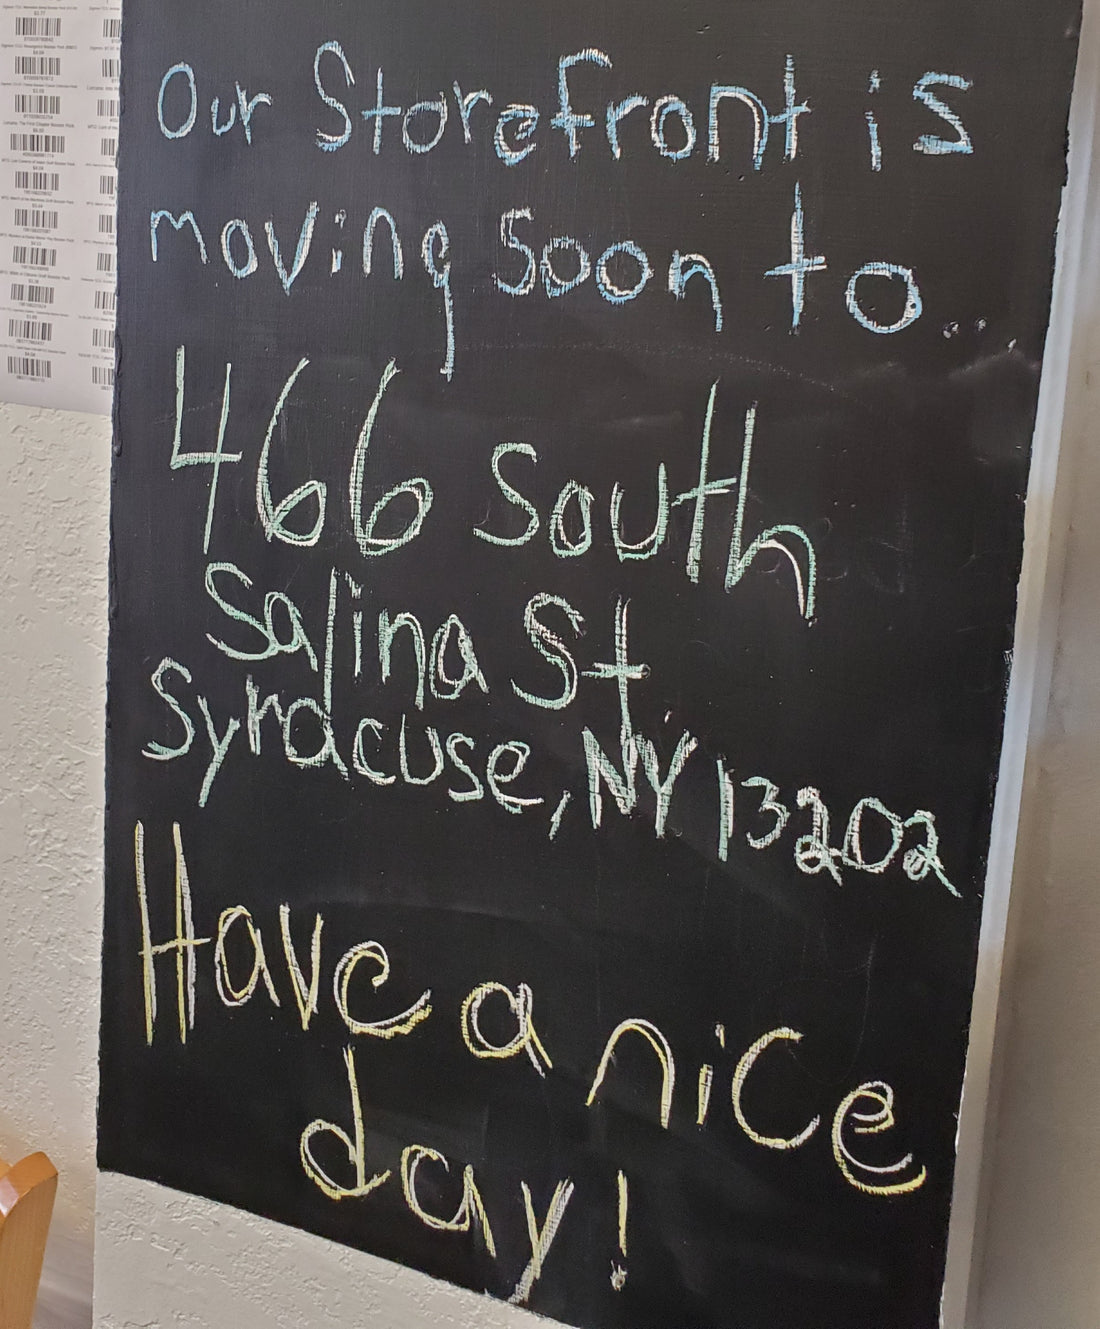 Our Storefront is
moving soon to...
466 South
Salina St
Syracuse, NY 13202
Have a nice
day!